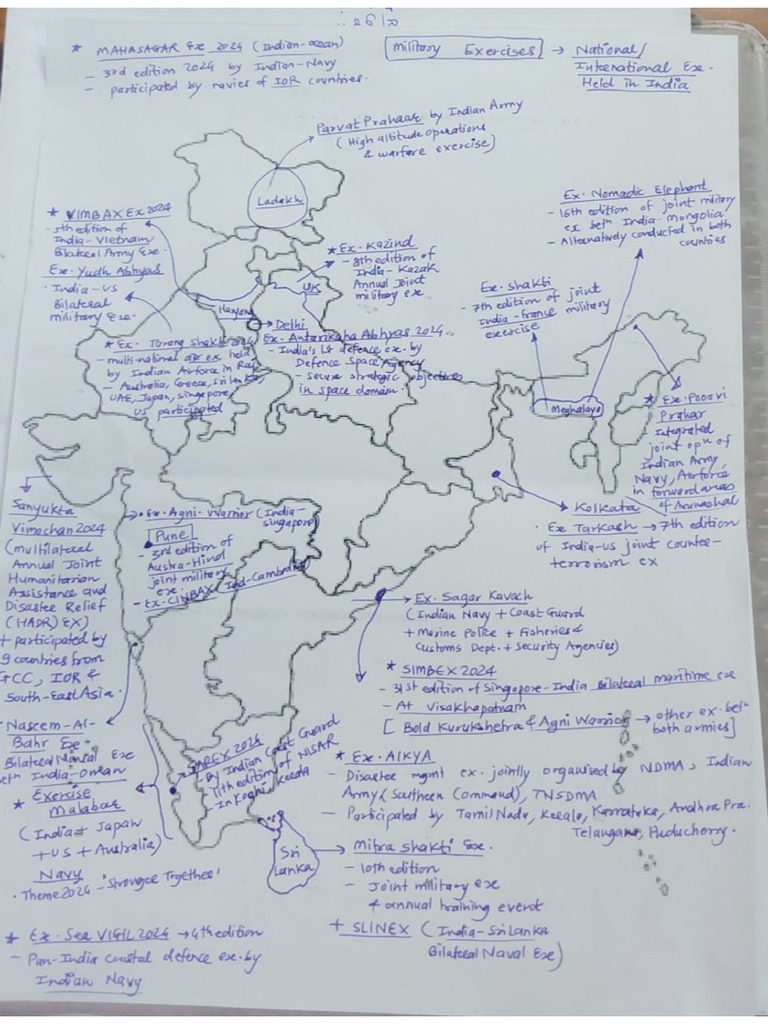 * MAHASAGAR Ex 2024 (Indian-ocean)
- 3rd edition 2024 by Indian-Navy
- participated by navies of IOR countries.
Military Exercises → National/
International Exe.
Held in India
Parvat Prahaar by Indian Army
(High altitude operations
& warfare exercise)
Ladakh
* VIMBAX Ex 2024
- 5th edition of
India-Vietnam
Bilateral Army Exe.
Ex. Yudh Abhyas
- India-US
Bilateral
military Exe.
* Ex. Kazind
- 8th edition of
India-Kazak
Annual Joint
military exe.
UK
Haryana
Ex. Nomadic Elephant
- 16th edition of joint military
ex betn India-Mongolia
- Alternatively conducted in both
countries
Ex. shakti
- 7th edition of joint
India-france military
exercise
→ Delhi
Ex. Antariksha Abhyas 2024
- India's 1st defence ex. by
Defence Space Agency
- secure strategic objectives
in space domain.
* Ex. Tarang shakti 2024
- multinational air ex held
by Indian Airforce in Raj
- Australia, Greece, sri lanka,
UAE, Japan, singapore,
US participated
Meghalaya
* Exe. Poorvi
Prahar
- Integrated
joint opn of
Indian Army
Navy, Airforce
in forward areas
of Arunachal
→ Kolkata
• Ex Tarkash → 7th edition
of India-US joint counter-
terrorism ex
Sanyukta
Vimochan 2024
(multilateral
Annual Joint
Humanitarian
Assistance and
Disaster Relief
(HADR) EX)
+ participated by
9 countries from
GCC, IOR &
South-East Asia.
• Ex. Agni-Warrior (India-
singapore)
Pune
- 3rd edition of
Austra-Hind
joint military
exe.
- Ex. CINBAX (Ind-Cambodia)
→ Ex. Sagar Kavach
(Indian Navy + Coast Guard
+ Marine Police + Fisheries &
Customs Dept. + Security Agencies)
* SIMBEX 2024
- 31st edition of Singapore-India Bilateral maritime exe
- At Visakhapatnam
[Bold Kurukshetra & Agni Warrior → other ex. betn
both armies]
Naseem-Al-
Bahr Exe
Bilateral Naval Exe
betn India-Oman
* Exercise
Malabar
(India + Japan
+ US + Australia)
Navy
• Theme 2024 - 'Stronger Together'
SAREX 2024
- By Indian Coast Guard
11th edition of NISAR
In Kochi, Kerala
* Ex. AIKYA
- Disaster mgmt ex. jointly organised by NDMA, Indian
Army (Southern Command), TNSDMA
- Participated by Tamil Nadu, Kerala, Karnataka, Andhra Pra.
Telangana, Puducherry.
Sri
Lanka
→ Mitra shakti Exe.
- 10th edition
- Joint military exe
& annual training event
+ SLINEX (India-Sri Lanka
Bilateral Naval Exe)
* Ex. Sea VIGIL 2024 → 4th edition
- Pan-India coastal defence exe. by
Indian Navy